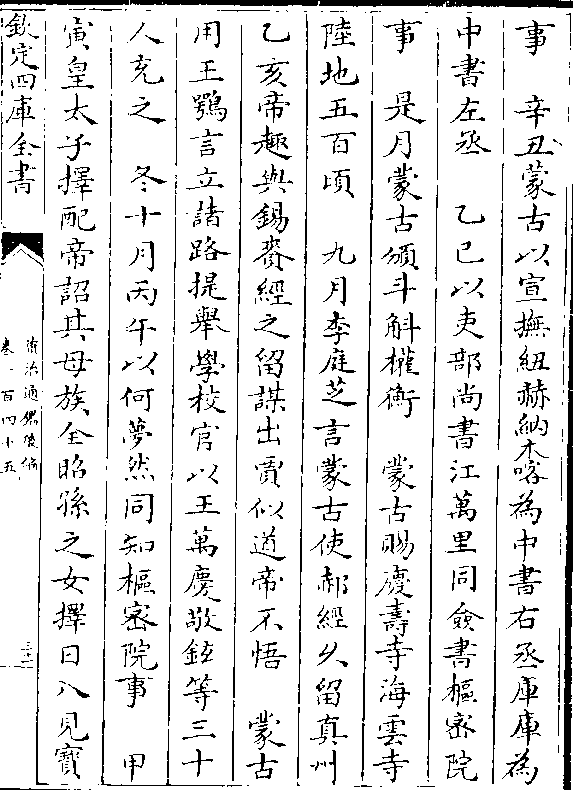 事　辛丑蒙古以宣撫紐赫納木喀為中書右丞庫庫為
中書左丞　　乙巳以吏部尚書江萬里同僉書樞密院
事　是月蒙古頒斗斛權衡　蒙古賜慶壽寺海雲寺
陸地五百頃　九月李庭芝言蒙古使郝經久留真州
乙亥帝趣與錫賚經之留謀出賈似道帝不悟　蒙古
用王鶚言立諸路提舉學校官以王萬慶敬鉉等三十
人充之　冬十月丙午以何夢然同知樞密院事　甲
寅皇太子擇配帝詔其母族全昭孫之女擇日入見寳
欽定四庫全書
資治通鑑後編
卷一百四十五